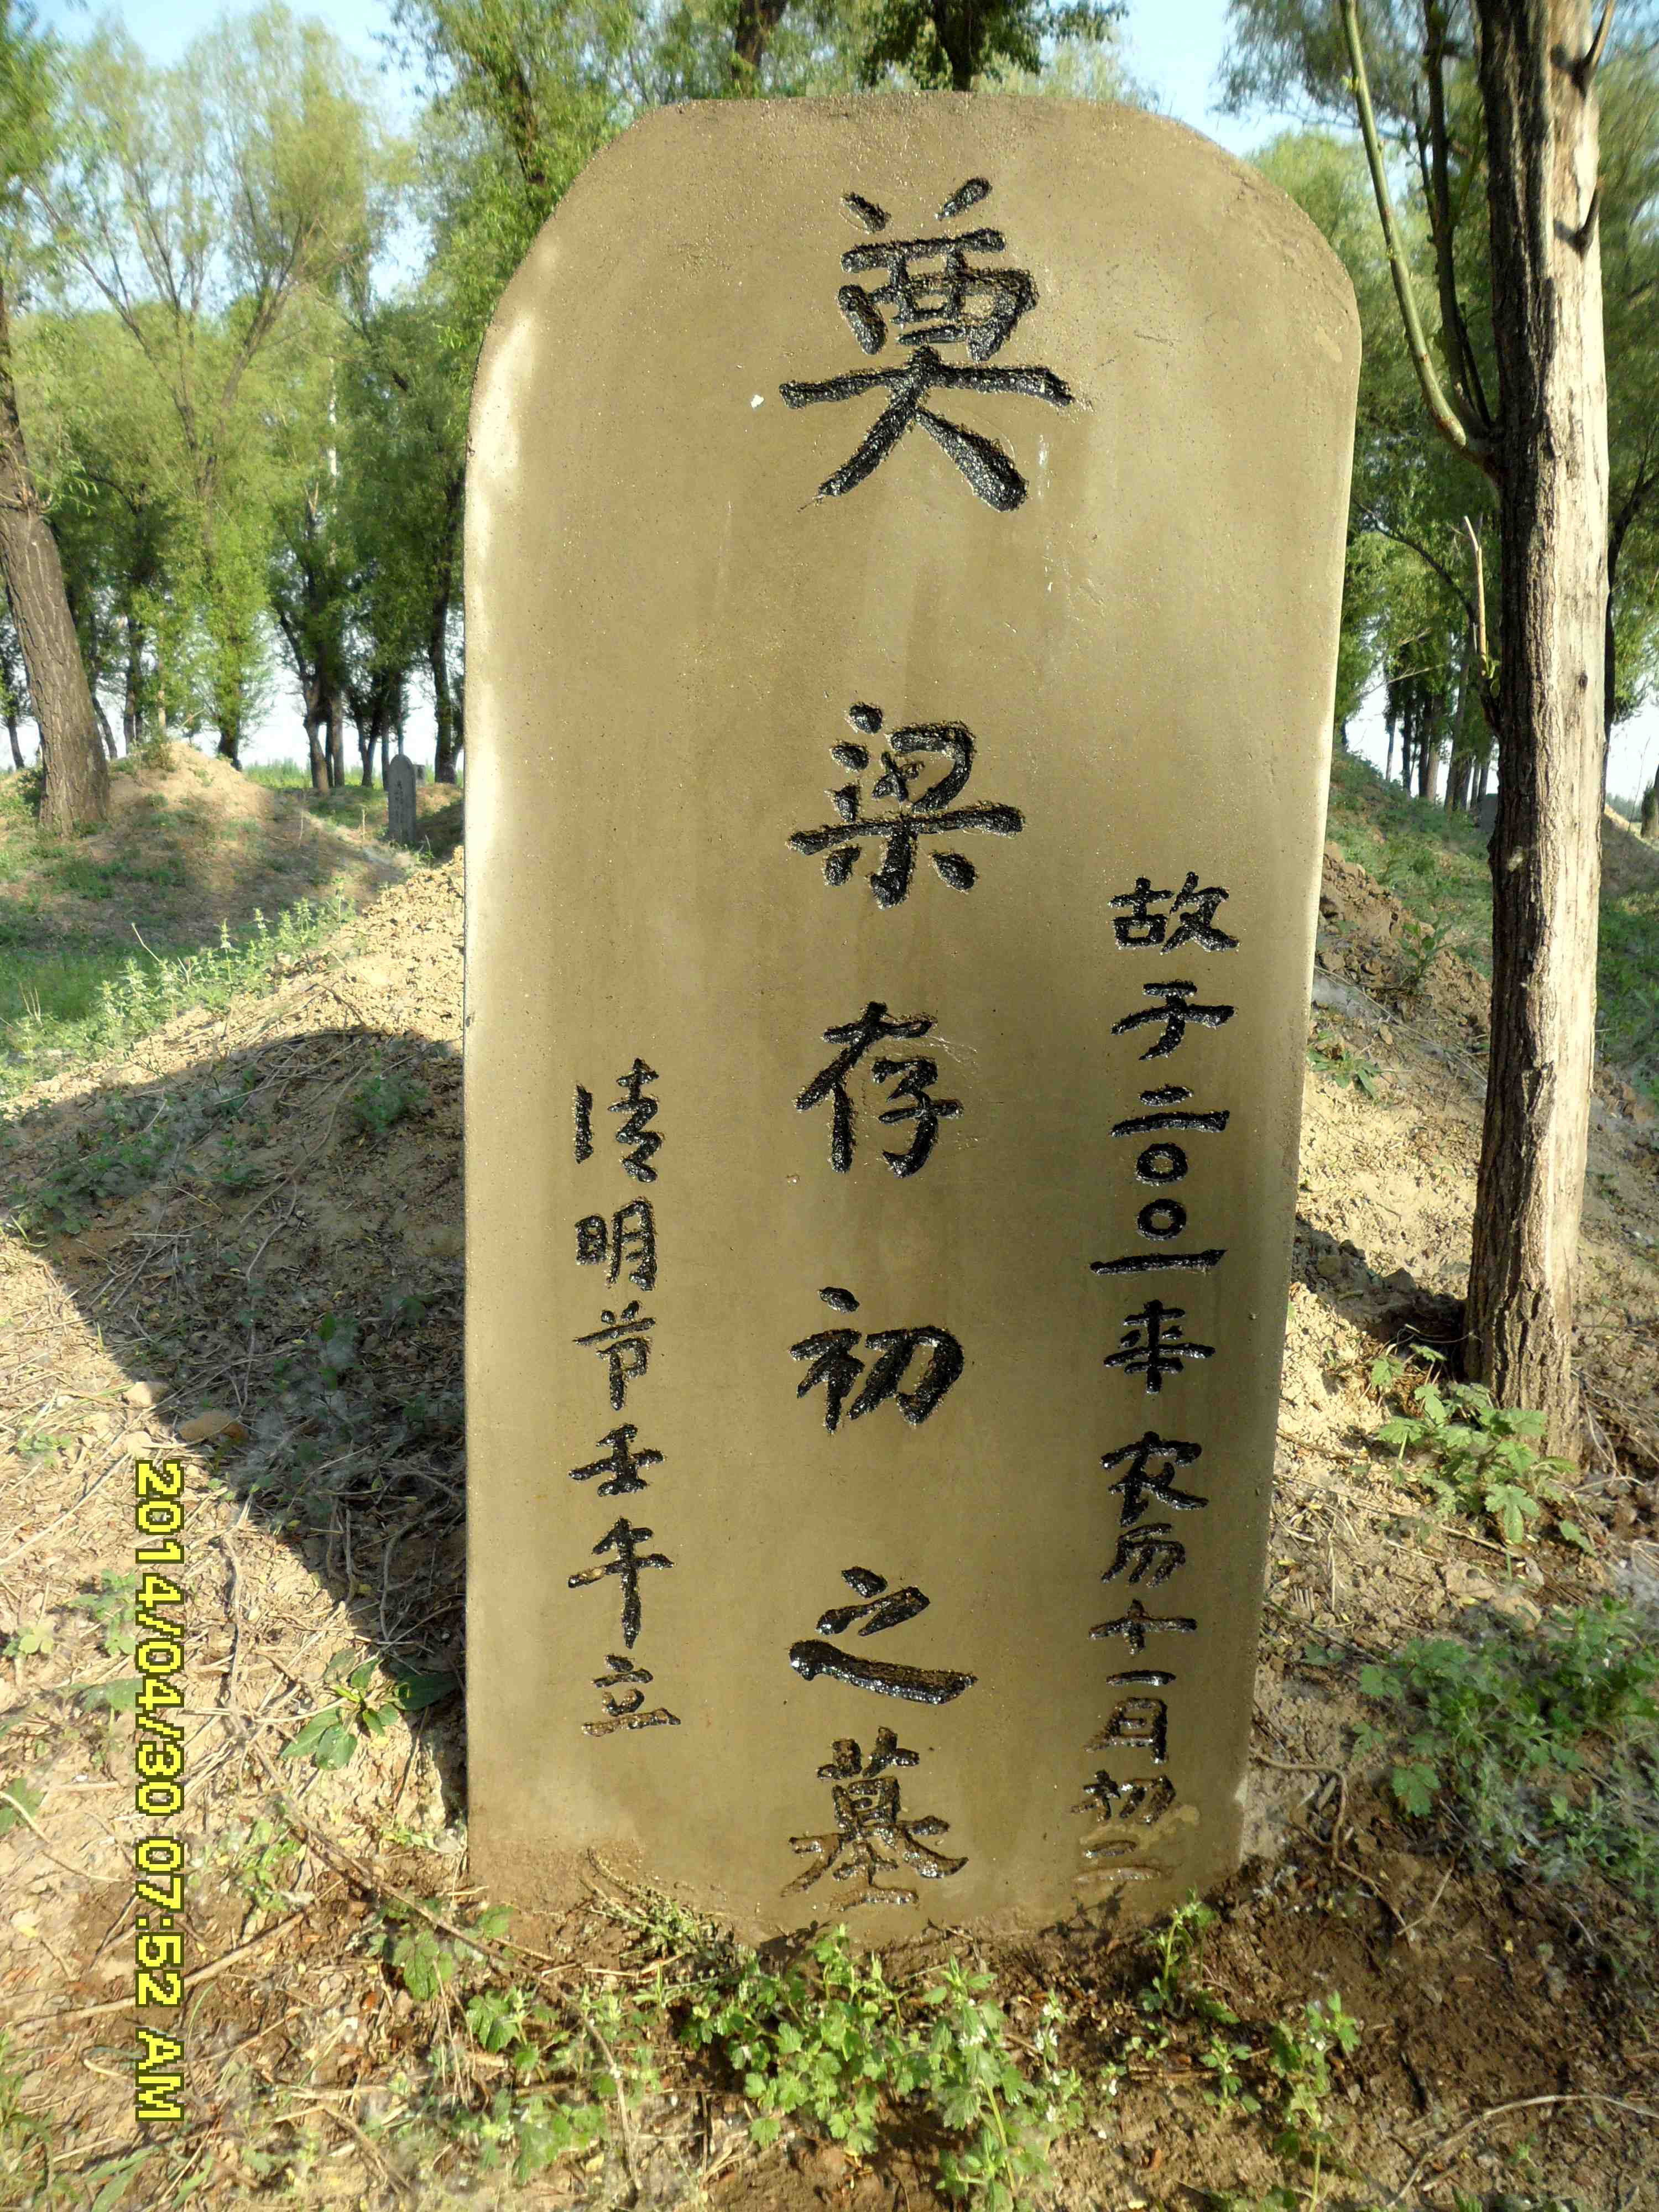 故于二〇〇一年农历十一月初二
奠 梁存初之墓
清明节壬午立
2014/04/30 07:52 AM